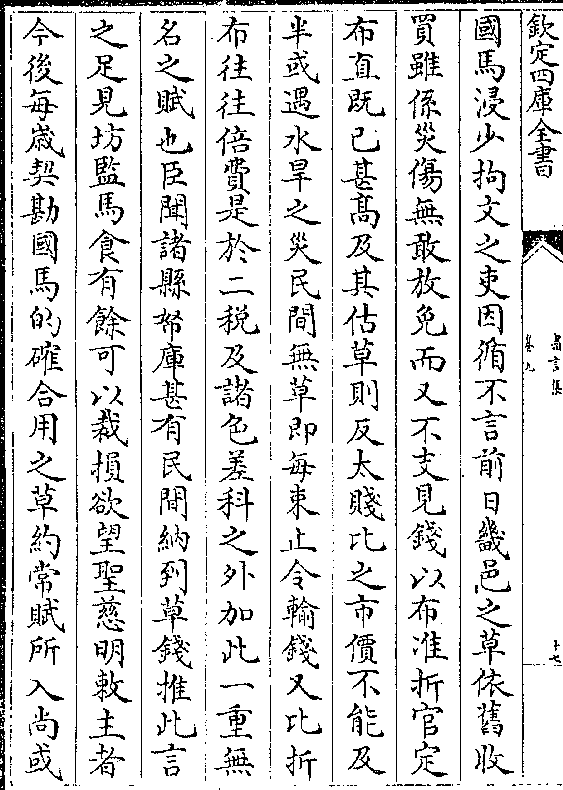 欽定四庫全書
盡言集
卷九
十七
國馬浸少拘文之吏因循不言前日畿邑之草依舊收
買雖係災傷無敢放免而又不支見錢以布准折官定
布直既已甚髙及其估草則反太賤比之市價不能及
半或遇水旱之災民間無草即每束止令輸錢又比折
布往往倍費是於二税及諸色差科之外加此一重無
名之賦也臣聞諸縣帑庫甚有民間納到草錢推此言
之足見坊監馬食有餘可以裁損欲望聖慈明敕主者
今後每歳契勘國馬的確合用之草約常賦所入尚或